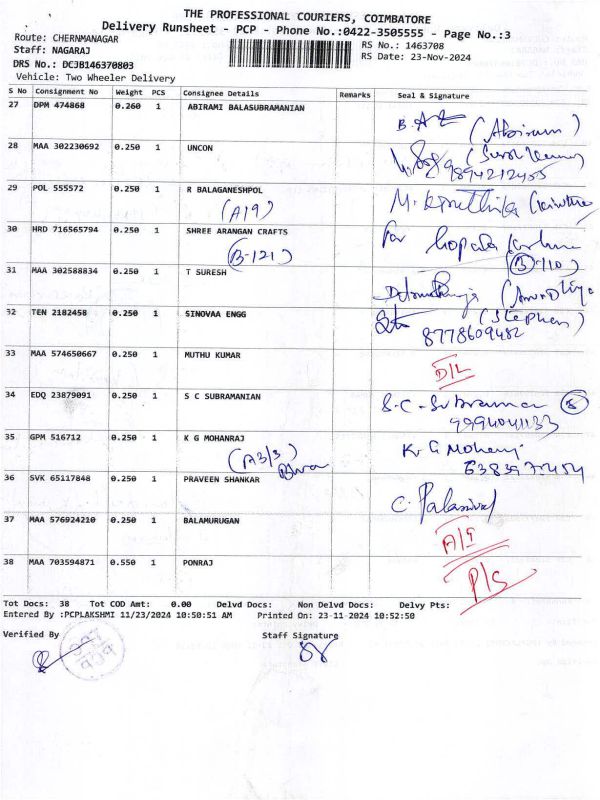 THE PROFESSIONAL COURIERS, COIMBATORE
Delivery Runsheet - PCP - Phone No.:0422-3505555 - Page No.:3
Route: CHERNMANAGAR
RS No.: 1463708
Staff: NAGARAJ
RS Date: 23-Nov-2024
DRS No.: DCJB146370803
Vehicle: Two Wheeler Delivery
S No Consignment No Weight PCS Consignee Details Remarks Seal & Signature
27 DPM 474868 0.260 1 ABIRAMI BALASUBRAMANIAN
(Abirami)
28 MAA 302230692 0.250 1 UNCON
9894212455
29 POL 555572 0.250 1 R BALAGANESHPOL
(A19) M. Kiruthika
30 HRD 716565794 0.250 1 SHREE ARANGAN CRAFTS
(B-121) For
31 MAA 302588834 0.250 1 T SURESH
32 TEN 2182458 0.250 1 SINOVAA ENGG
(Stephen)
8778609482
33 MAA 574650667 0.250 1 MUTHU KUMAR
D/L
34 EDQ 23879091 0.250 1 S C SUBRAMANIAN
9994041133
35 GPM 516712 0.250 1 K G MOHANRAJ
(A3/3) K G Mohanraj
36 SVK 65117848 0.250 1 PRAVEEN SHANKAR
C. Palanivel
37 MAA 576924210 0.250 1 BALAMURUGAN
38 MAA 703594871 0.550 1 PONRAJ
P/S
Tot Docs: 38 Tot COD Amt: 0.00 Delvd Docs: Non Delvd Docs: Delvy Pts:
Entered By :PCPLAKSHMI 11/23/2024 10:50:51 AM Printed On: 23-11-2024 10:52:50
Verified By Staff Signature